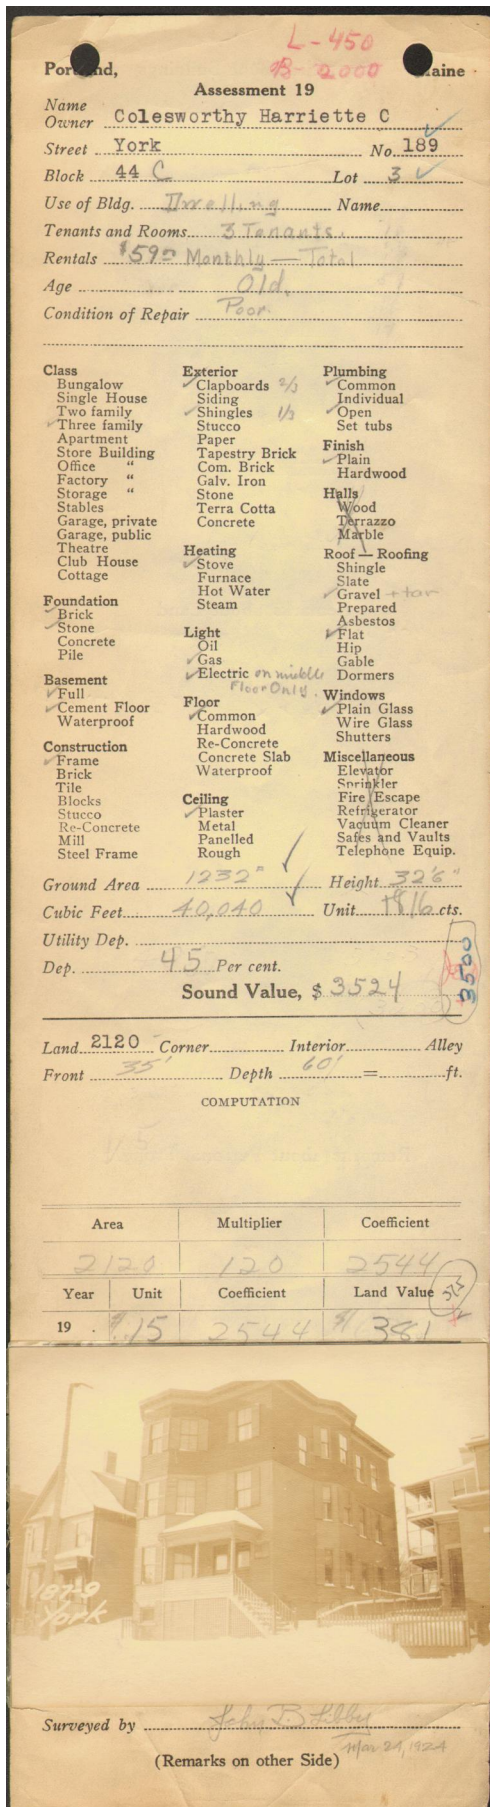 L-450
B-2000
Portland, Maine
Assessment 19
Name
Owner Colesworthy Harriette C
Street York No. 189
Block 44 C Lot 3
Use of Bldg. Dwelling Name
Tenants and Rooms 3 Tenants.
Rentals $59.00 Monthly — Total
Age Old.
Condition of Repair Poor.
Class
Bungalow
Single House
Two family
✓Three family
Apartment
Store Building
Office "
Factory "
Storage "
Stables
Garage, private
Garage, public
Theatre
Club House
Cottage
Foundation
✓Brick
✓Stone
Concrete
Pile
Basement
✓Full
✓Cement Floor
Waterproof
Construction
✓Frame
Brick
Tile
Blocks
Stucco
Re-Concrete
Mill
Steel Frame
Exterior
✓Clapboards 2/3
Siding
✓Shingles 1/3
Stucco
Paper
Tapestry Brick
Com. Brick
Galv. Iron
Stone
Terra Cotta
Concrete
Heating
✓Stove
Furnace
Hot Water
Steam
Light
Oil
✓Gas
✓Electric on middle
Floor Only.
Floor
✓Common
Hardwood
Re-Concrete
Concrete Slab
Waterproof
Ceiling
✓Plaster
Metal
Panelled
Rough
Plumbing
✓Common
Individual
✓Open
Set tubs
Finish
✓Plain
Hardwood
Halls
Wood
Terrazzo
Marble
Roof — Roofing
Shingle
Slate
✓Gravel + tar
Prepared
Asbestos
✓Flat
Hip
Gable
Dormers
Windows
✓Plain Glass
Wire Glass
Shutters
Miscellaneous
Elevator
Sprinkler
Fire Escape
Refrigerator
Vacuum Cleaner
Safes and Vaults
Telephone Equip.
Ground Area 1232" Height 32'6"
Cubic Feet 40,040 Unit 16 cts.
Utility Dep.
Dep. 45 Per cent.
3500
Sound Value, $ 3524
Land 2120 Corner Interior Alley
Front 35' Depth 60' = ft.
COMPUTATION
Area Multiplier Coefficient
2120 120 2544
Year Unit Coefficient Land Value
19 . $.15 2544 $381
187-9
York
Surveyed by John B. Libby
Mar 24, 1924
(Remarks on other Side)